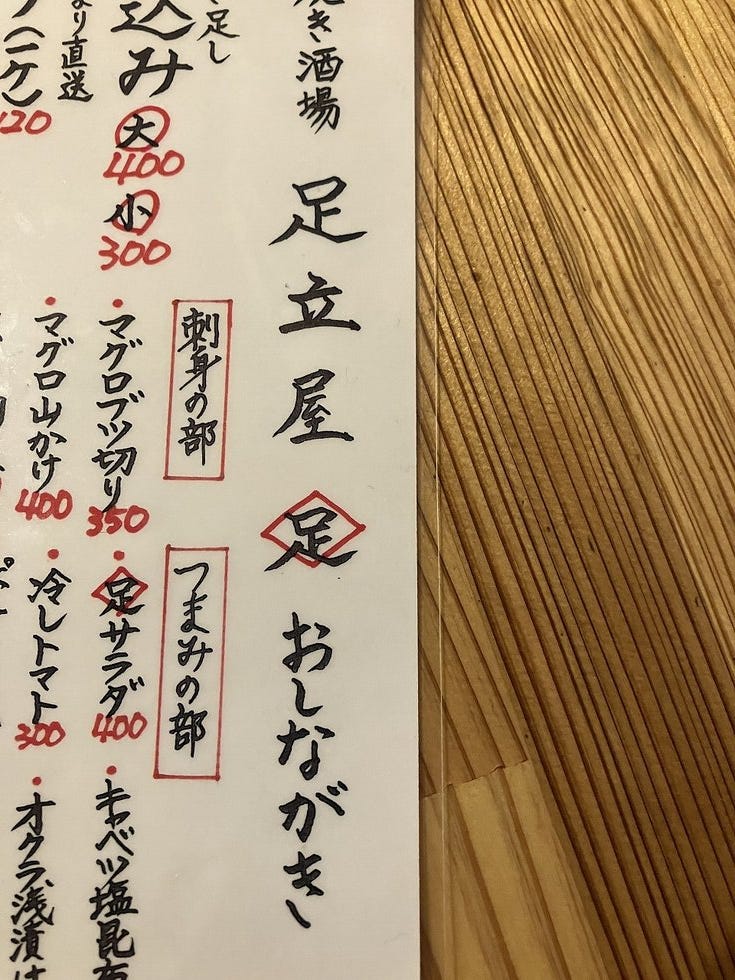 き酒場 足立屋 足 おしながき
足し
込み 大 400 小 300
より直送
(一ケ) 120
刺身の部
・マグロブツ切り 350
・マグロ山かけ 400
つまみの部
・足サラダ 400
・冷しトマト 300
・キャベツ塩昆布
・オクラ浅漬け